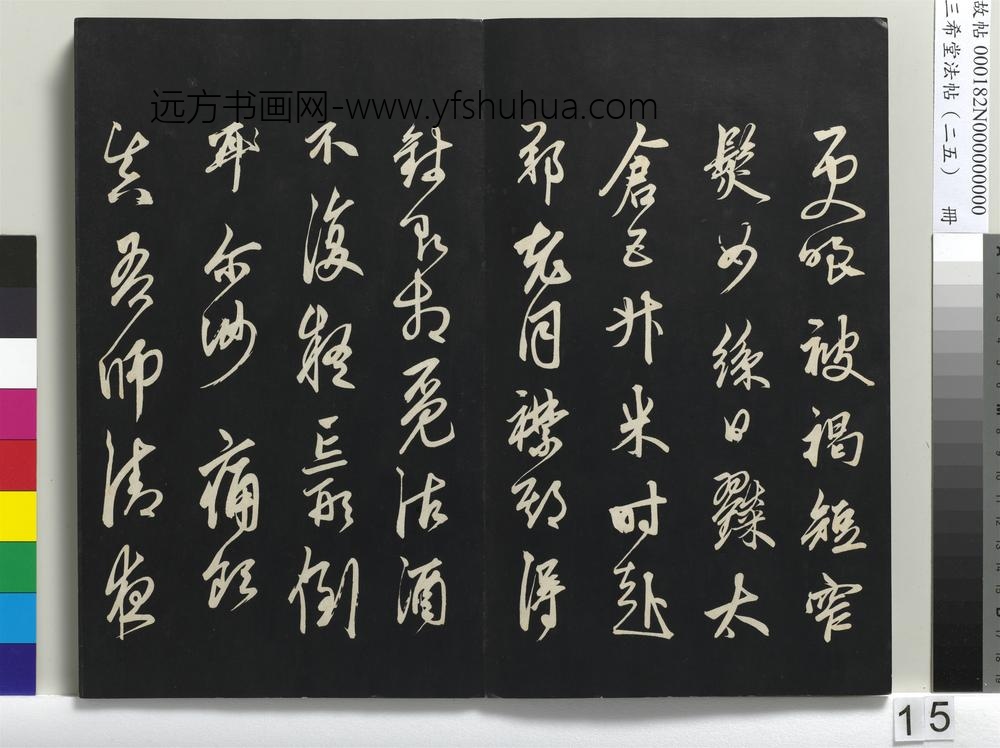 更嗤被褐短窄
鬢如絲日糴太
倉五升米時赴
鄭老同襟期得
錢即相覓沽酒
不復疑忘形倒
尔汝痛飲
真吾師清夜
远方书画网-www.yfshuhua.com
故帖 000182N000000000
三希堂法帖（二五） 冊
15